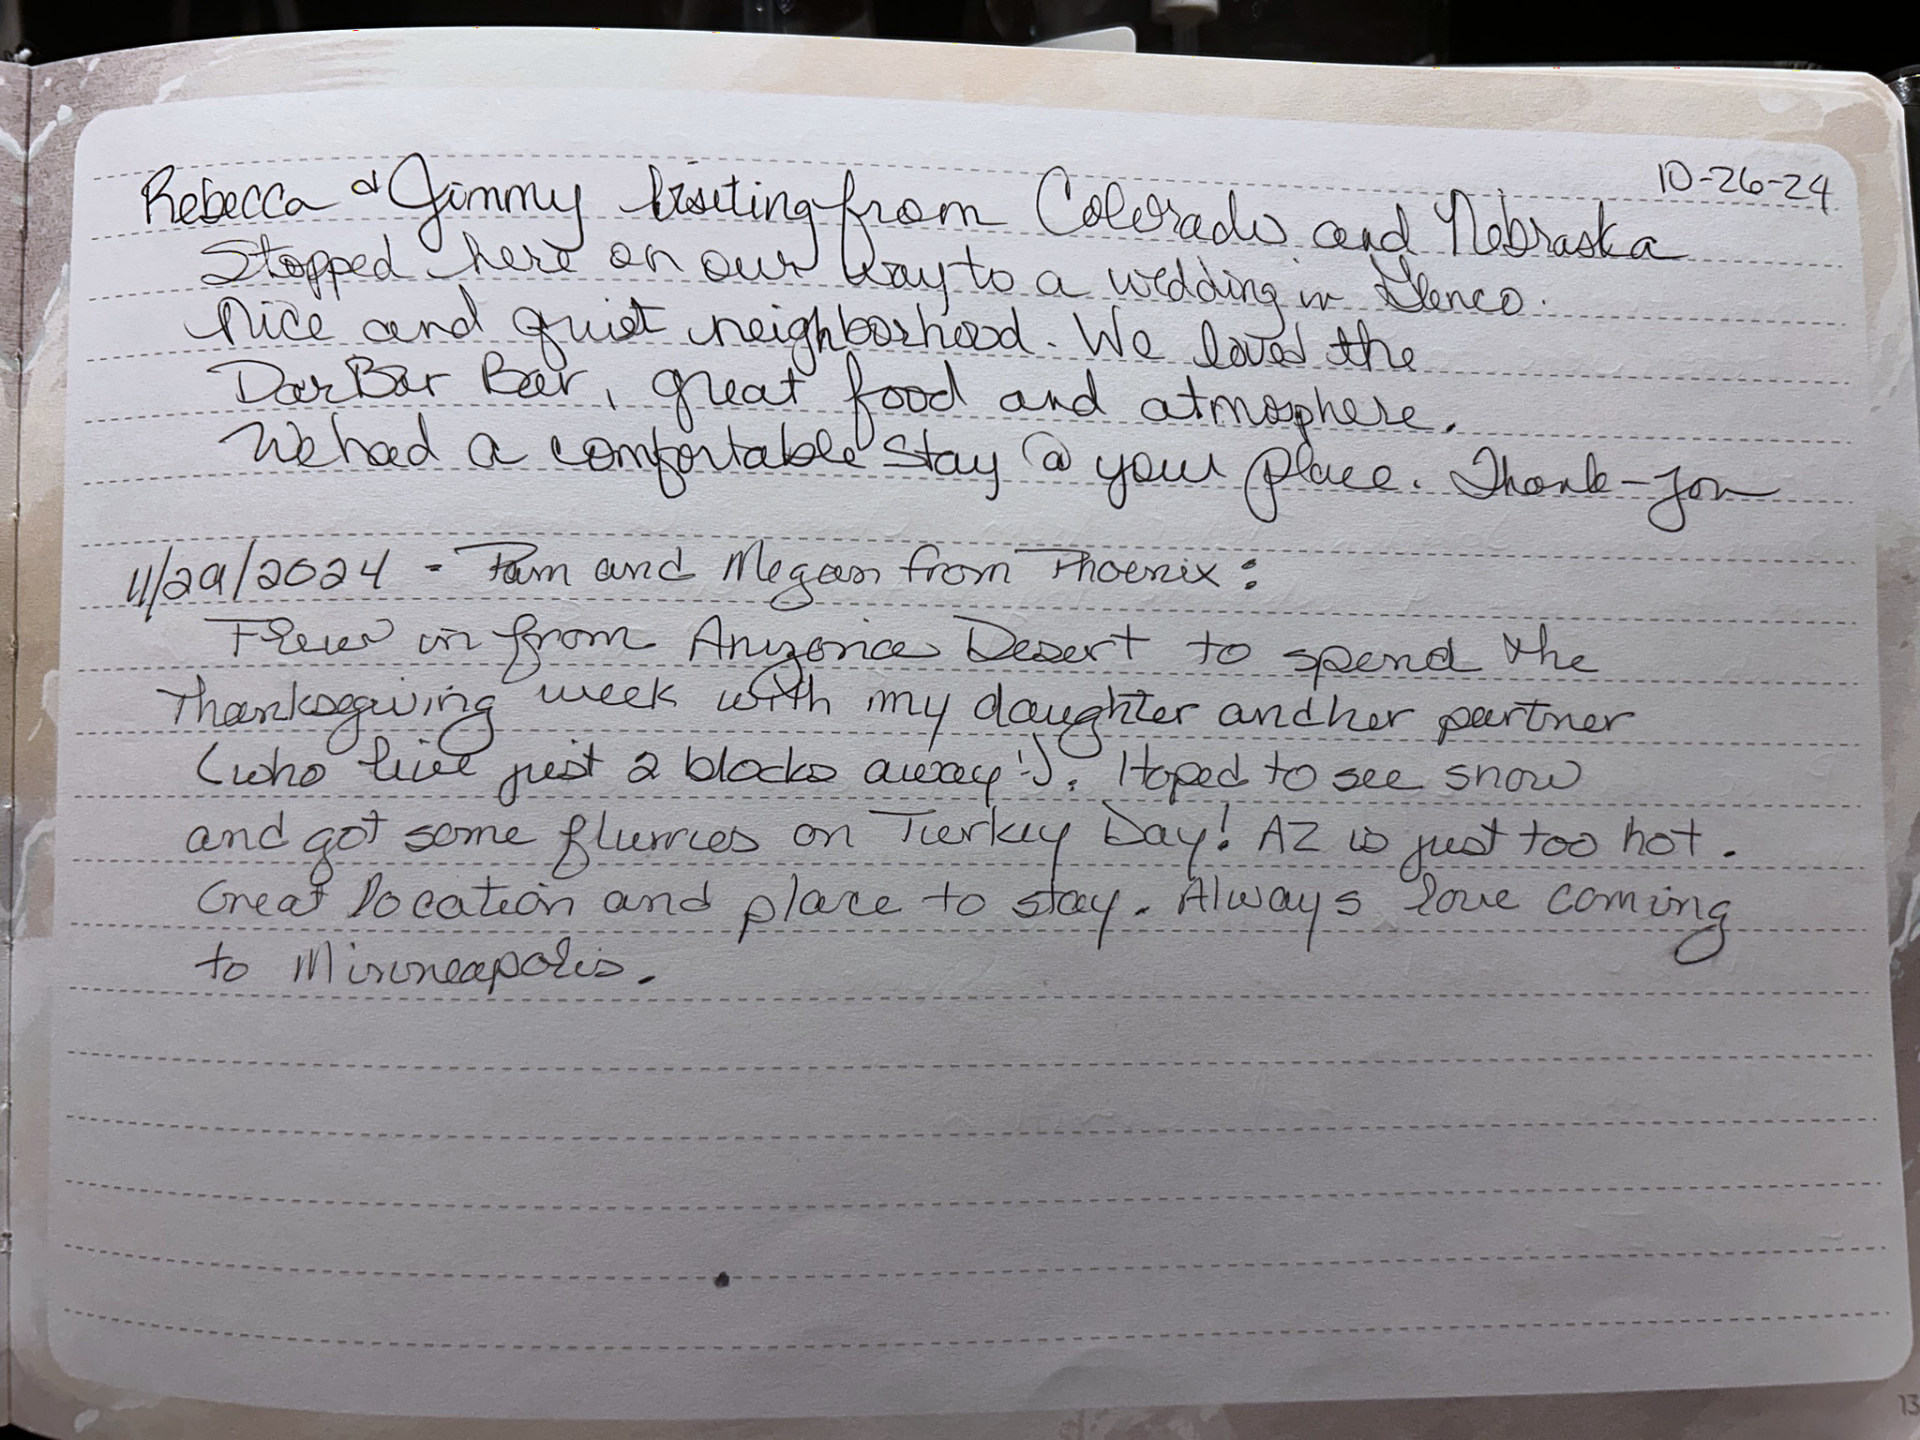 10-26-24
Rebecca & Jimmy Visiting from Colorado and Nebraska
Stopped here on our way to a wedding in Glenco.
Nice and quiet neighborhood. We loved the
DarBar Bar, great food and atmosphere.
We had a comfortable stay @ your place. Thank-you
11/29/2024 - Pam and Megan from Phoenix:
Flew in from Arizona Desert to spend the
Thanksgiving week with my daughter and her partner
(who live just 2 blocks away :). Hoped to see snow
and got some flurries on Turkey Day! AZ is just too hot.
Great location and place to stay. Always love coming
to Minneapolis.
13